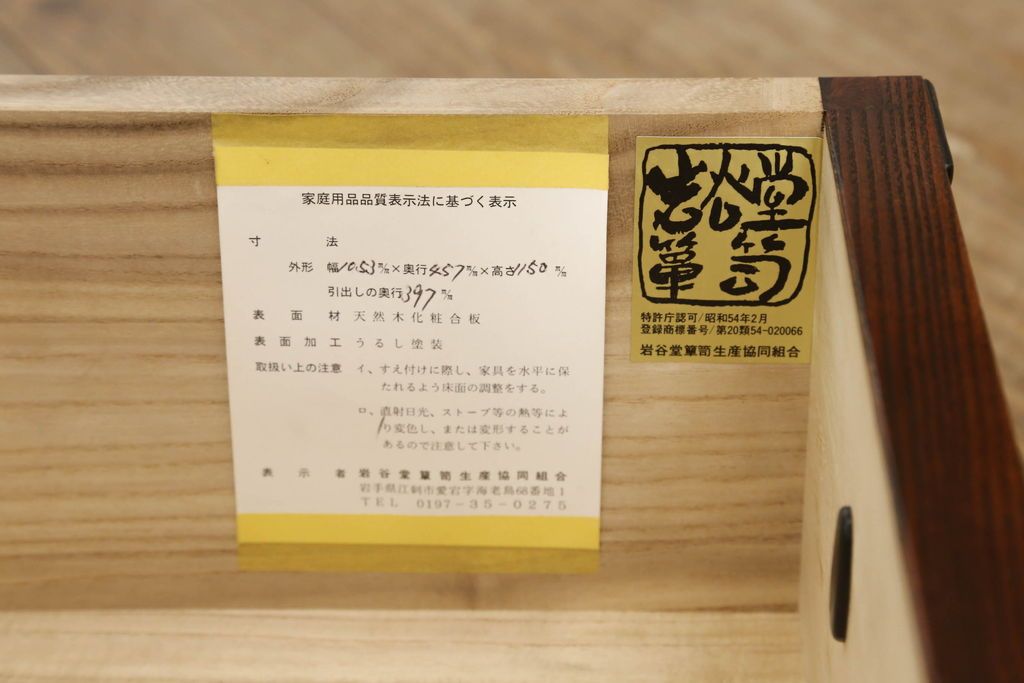 家庭用品品質表示法に基づく表示
寸法
外形 幅1053m/m×奥行457m/m×高さ1150m/m
引出しの奥行397m/m
表面材 天然木化粧合板
表面加工 うるし塗装
取扱い上の注意 イ、すえ付けに際し、家具を水平に保
たれるよう床面の調整をする。
ロ、直射日光、ストーブ等の熱等によ
り変色し、または変形することが
あるので注意して下さい。
表示者 岩谷堂簞笥生産協同組合
岩手県江刺市愛宕字海老島68番地1
TEL 0197-35-0275
岩谷堂
簞笥
特許庁認可/昭和54年2月
登録商標番号/第20類54-020066
岩谷堂簞笥生産協同組合